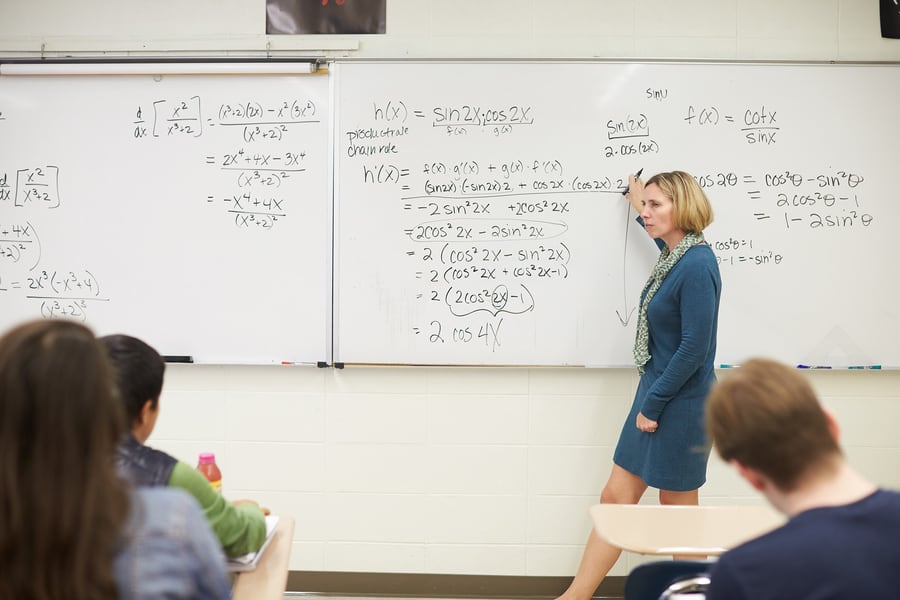 d/dx [x²/(x³+2)] = ((x³+2)(2x) - x²(3x²))/(x³+2)²
= (2x⁴+4x-3x⁴)/(x³+2)²
= (-x⁴+4x)/(x³+2)²
d/dx [x²/(x³+2)]
= 2x³(-x³+4)/(x³+2)³
h(x) = sin2x·cos2x
f(x) g(x)
product rule
chain role
h'(x) = f(x)·g'(x) + g(x)·f'(x)
= (sin2x)·(-sin2x)2 + cos2x·(cos2x)·2
= -2sin²2x +2cos²2x
= 2cos²2x - 2sin²2x
= 2(cos²2x - sin²2x)
= 2(cos²2x + cos²2x-1)
= 2(2cos²2x-1)
= 2cos4x
sinu
sin(2x)
2·cos(2x)
f(x) = cotx/sinx
cos2θ = cos²θ - sin²θ
= 2cos²θ - 1
= 1 - 2sin²θ
cos²θ = 1
-1 = -sin²θ